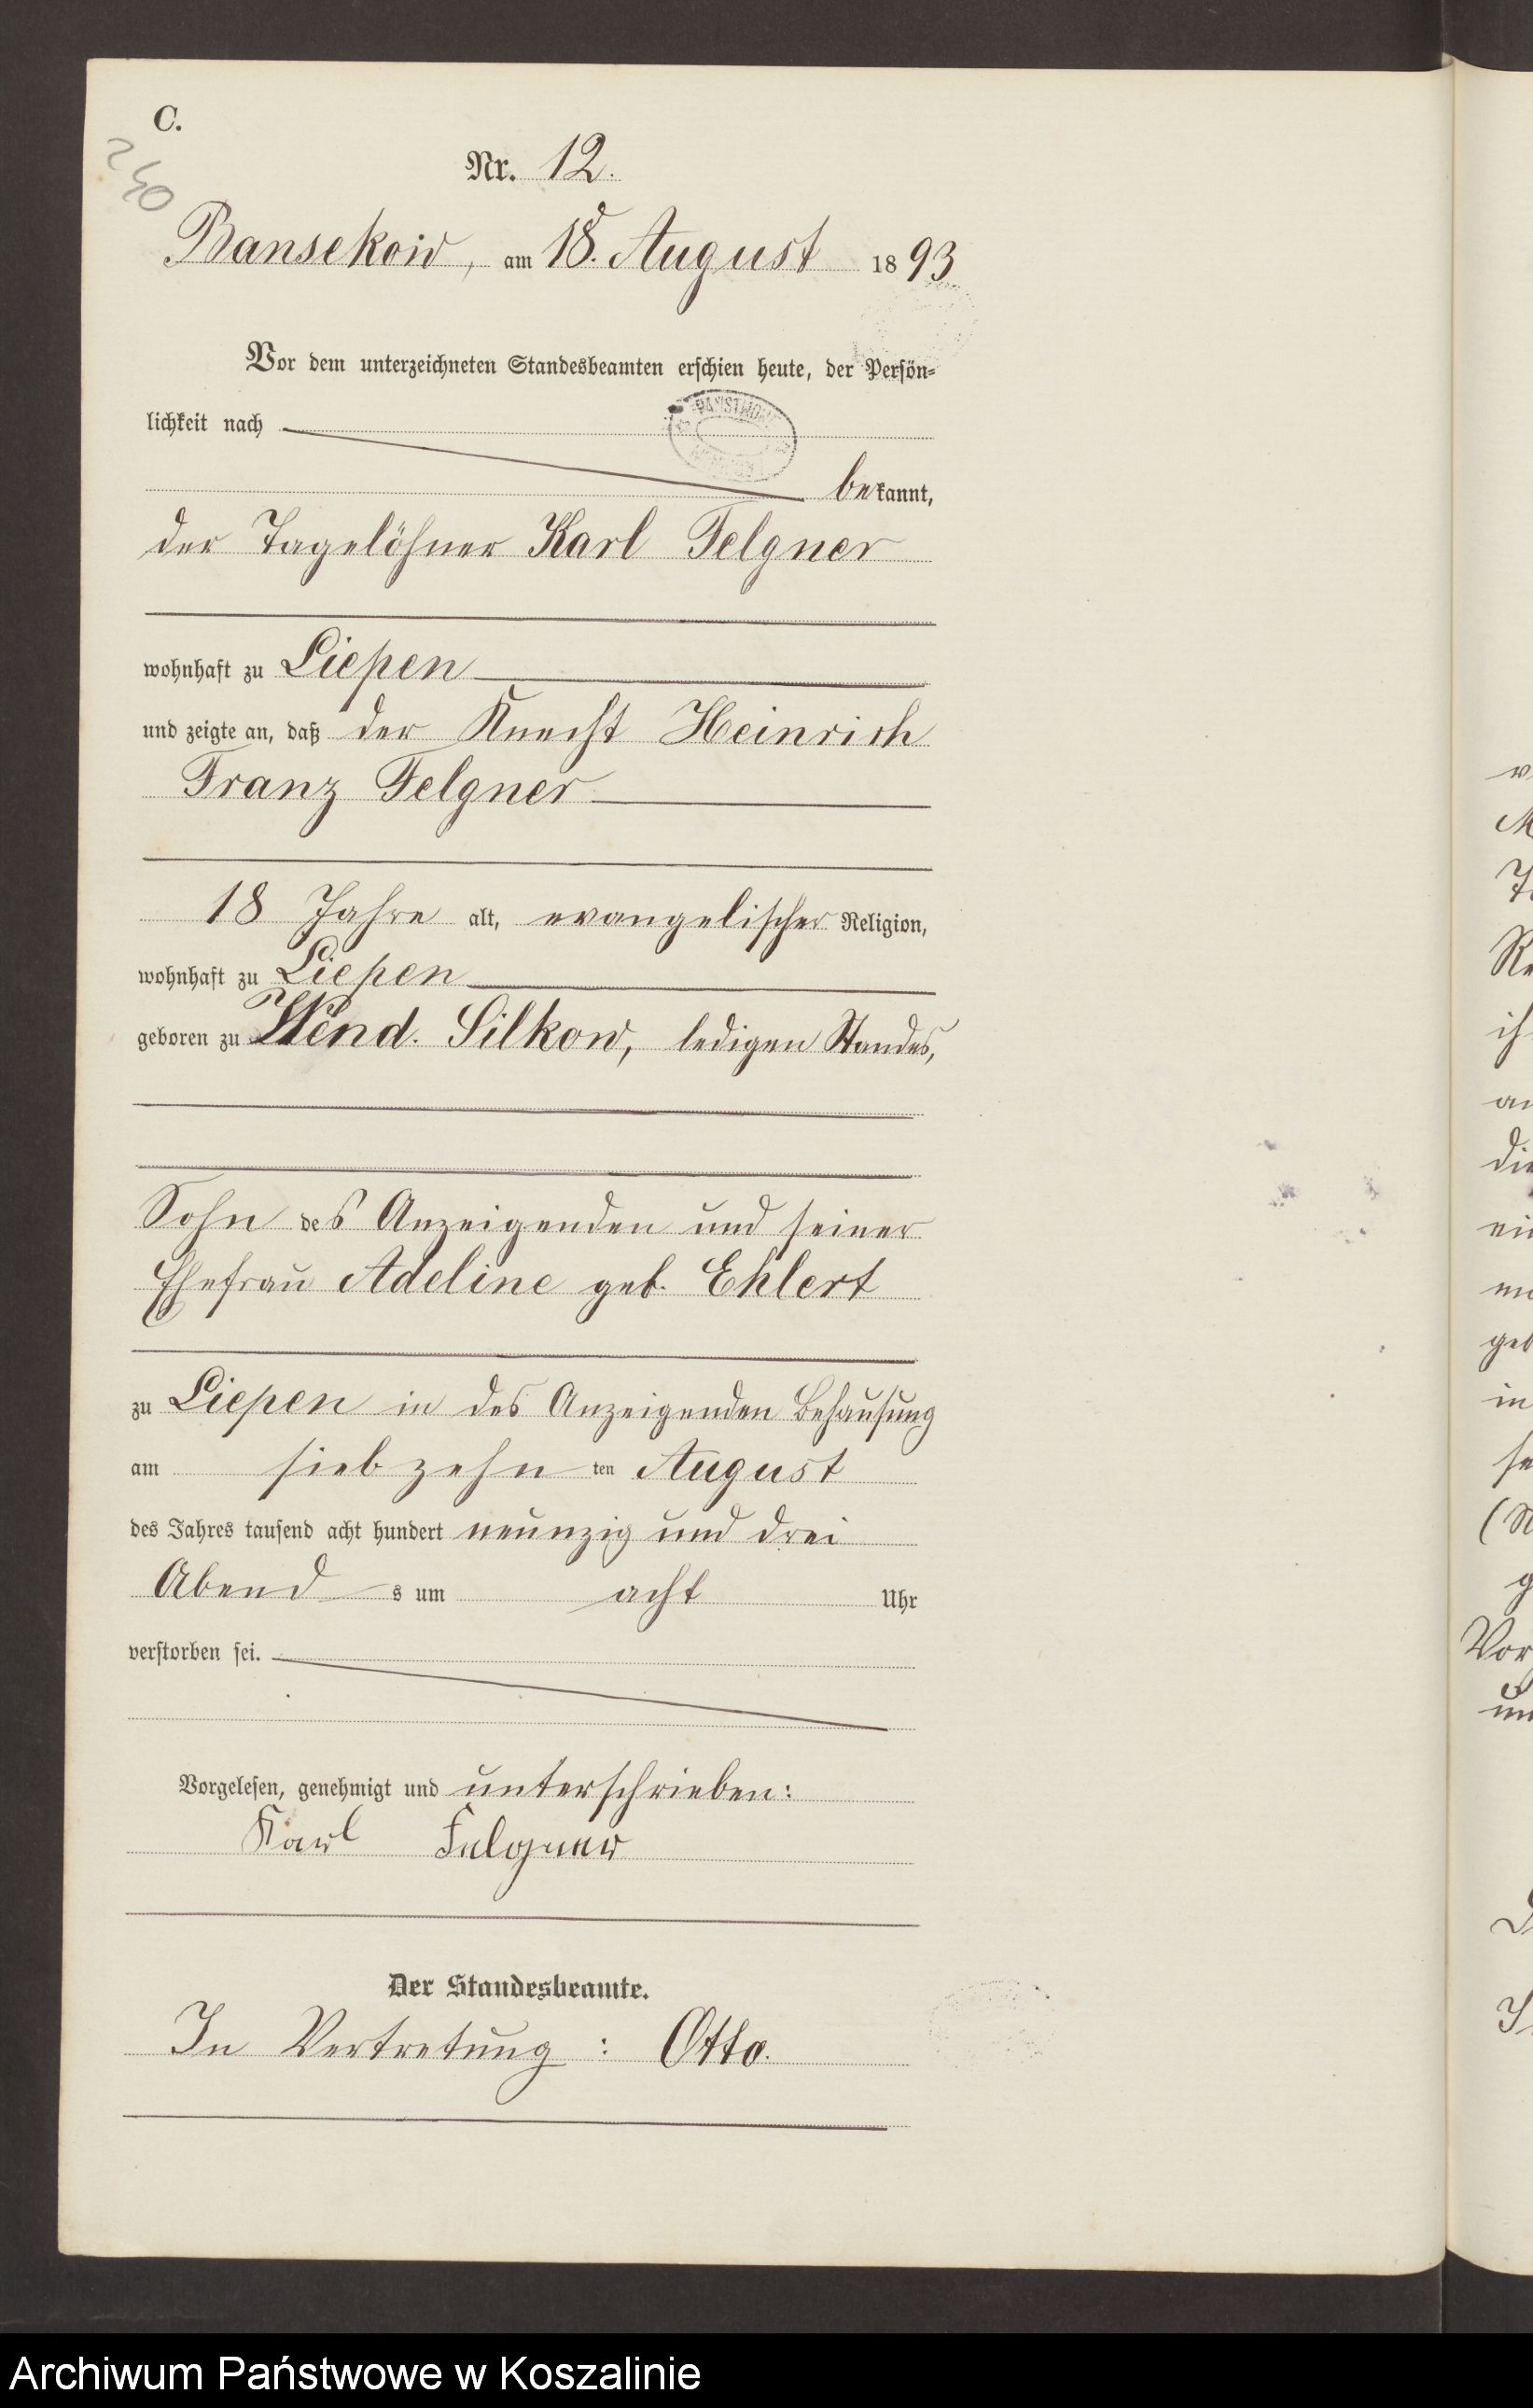 C.
240
Nr. 12.
Bansekow, am 18. August 1893
Vor dem unterzeichneten Standesbeamten erschien heute, der Persön=
lichkeit nach
bekannt,
der Tagelöhner Karl Felgner
wohnhaft zu Liepen
und zeigte an, daß der Knecht Heinrich
Franz Felgner
18 Jahre alt, evangelischer Religion,
wohnhaft zu Liepen
geboren zu Wend. Silkow, ledigen Standes,
Sohn des Anzeigenden und seiner
Ehefrau Adeline geb. Ehlert
zu Liepen in des Anzeigenden Behausung
am siebzehnten August
des Jahres tausend acht hundert neunzig und drei
Abends um acht Uhr
verstorben sei.
Vorgelesen, genehmigt und unterschrieben:
Karl Felgner
Der Standesbeamte.
In Vertretung: Otto.
Archiwum Państwowe w Koszalinie